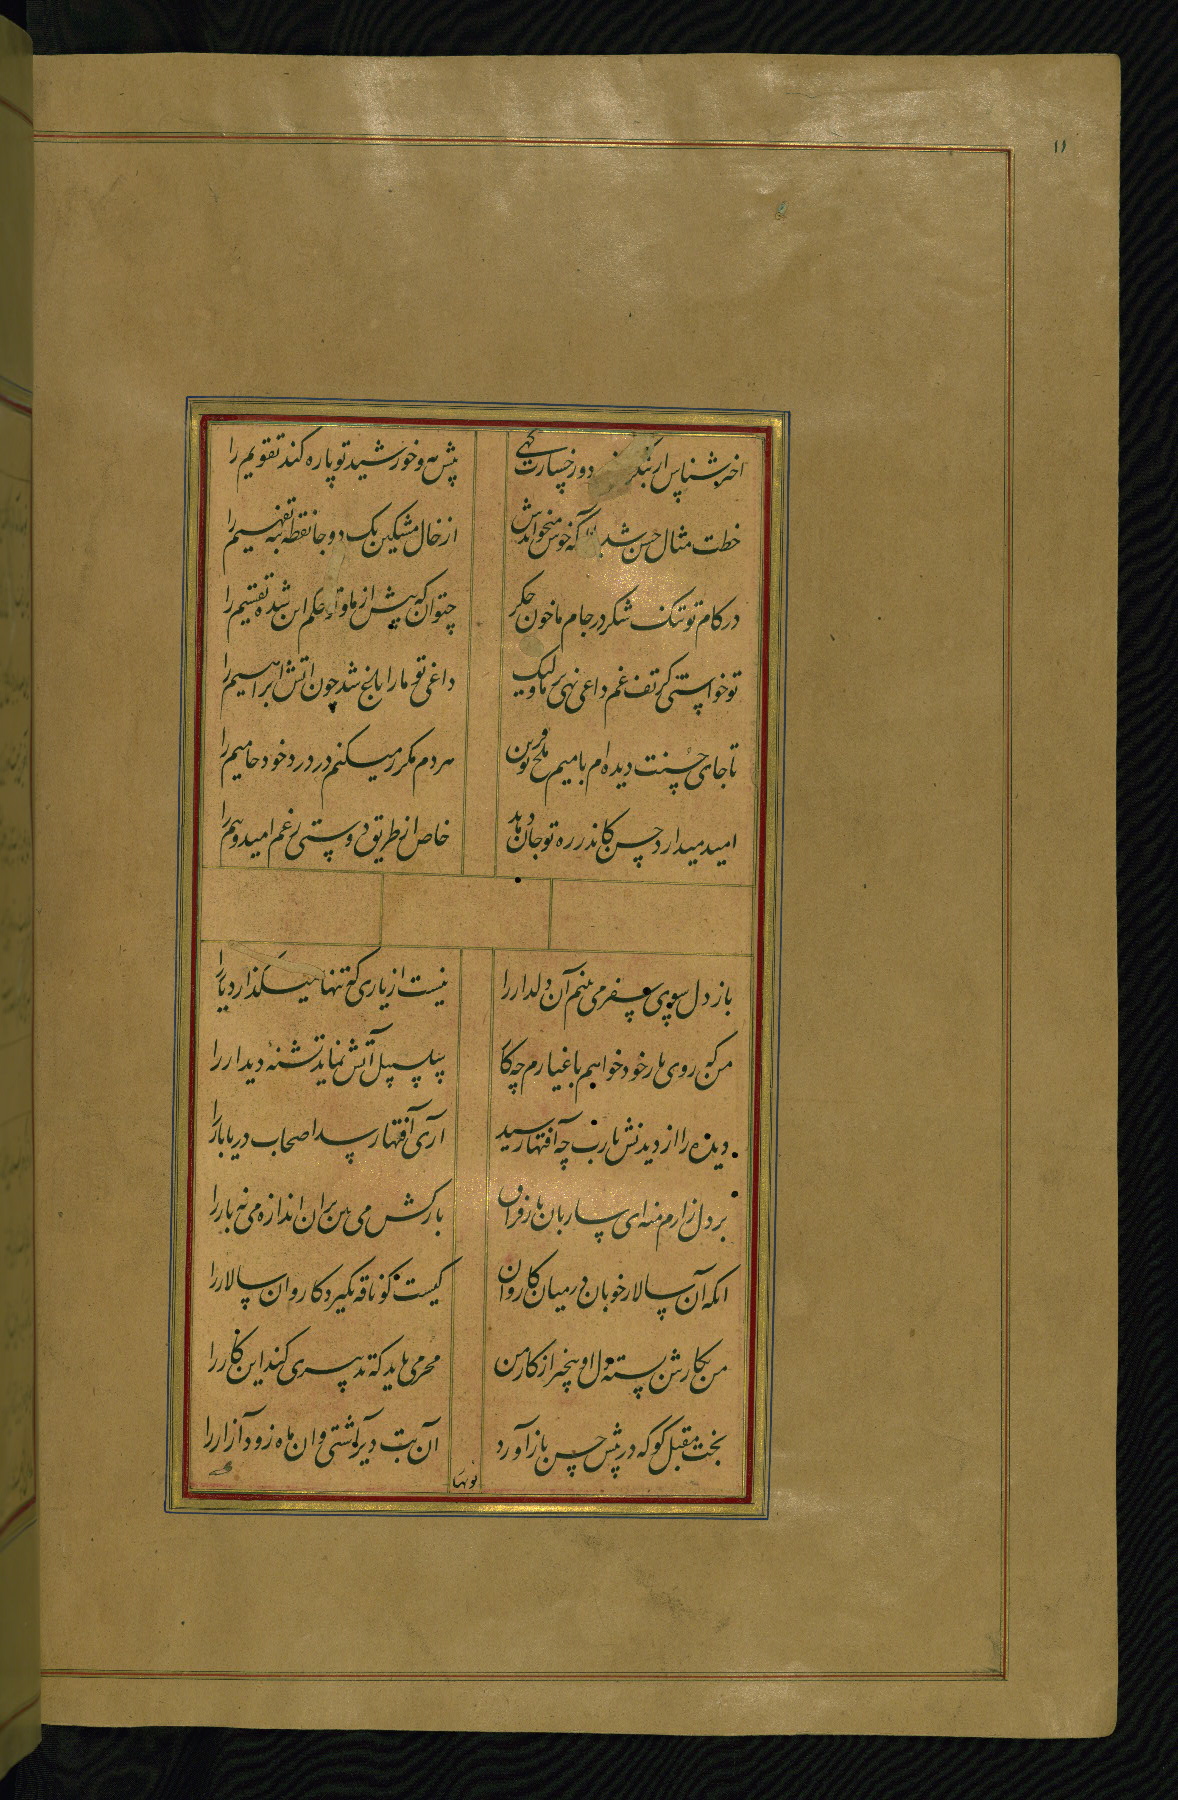 ۱۱
اختر شناس ار بنگرد دو رخسارت کهی
پیش مه و خورشید تو پاره کند تقویم را
خطت مثال حسن شد خوش میخواندش
از خال مشکین یک دو جا نقطه بنه تفهیم را
در کام تو تنک شکر در جام ما خون جکر
چتوان که پیش از ما و تو حکم این شده تقسیم را
تو خواستی کز تف غم داغی نهی بر ما ولیک
داغی تو ما را باغ شد چون اتش ابراهیم را
تا جای حسنت دیده‌ام با میم ملح نون
هر دم مکرر میکنم در درد خود حامیم را
امید میدارد حسن کاندر ره تو جان دهد
خاص از طریق دوستی بی غم امید و بیم را
باز دل سوی سفر می بینم آن دلدار را
نیست از یاری که تنها میگذارد یار را
من که روی یار خود خواهم باغیارم چه کار
پیل پیل آتش نماید تشنهٔ دیدار را
دیده را از دیدنش یارب چه آفتها رسید
آری آفتها رسد اصحاب دریا بار را
بر دل زارم منه ای ساربان بار فراق
بارکش می بین بران اندازه می نه بار را
انکه آن سالار خوبان در میان کاروان
کیست کو ناقه بگیرد کاروان سالار را
من بکارش تن بسته دل او بیخبر از کار من
محرمی باید که تدبیری کند این کار را
بخت مقبل کو که در پیش حسن باز آورد
آن بت دیر آشتی وان ماه زود آزار را